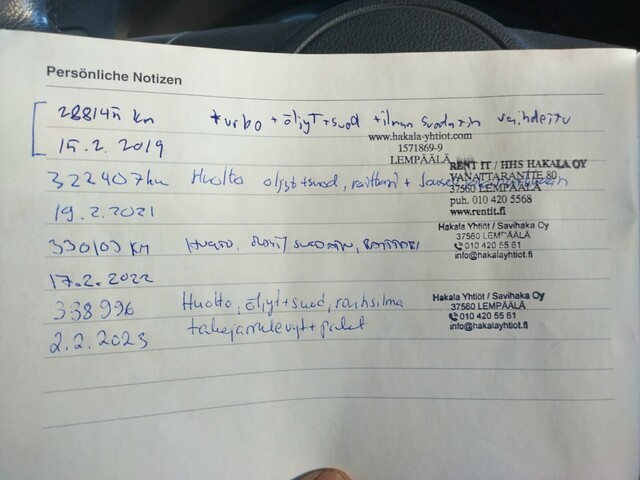 Persönliche Notizen
288145 km turbo + öljyt + suod + ilman suodatin vaihdettu
15.2.2019
www.hakala-yhtiot.com
1571869-9
LEMPÄÄLÄ
RENT IT / HHS HAKALA OY
VANATTARANTIE 80
37560 LEMPÄÄLÄ
puh. 010 420 5568
www.rentit.fi
322407km Huolto öljyt+suod, raitisi +
19.2.2021
330103 KM HUOLTO, ÖLJYT/SUODATIN, RAITISI
Hakala Yhtiöt / Savihaka Oy
37560 LEMPÄÄLÄ
010 420 55 61
info@hakalayhtiot.fi
17.2.2022
338996 Huolto, öljyt+suod, raitisilma
2.2.2023 takajarrulevyt + palat
Hakala Yhtiöt / Savihaka Oy
37560 LEMPÄÄLÄ
010 420 55 61
info@hakalayhtiot.fi